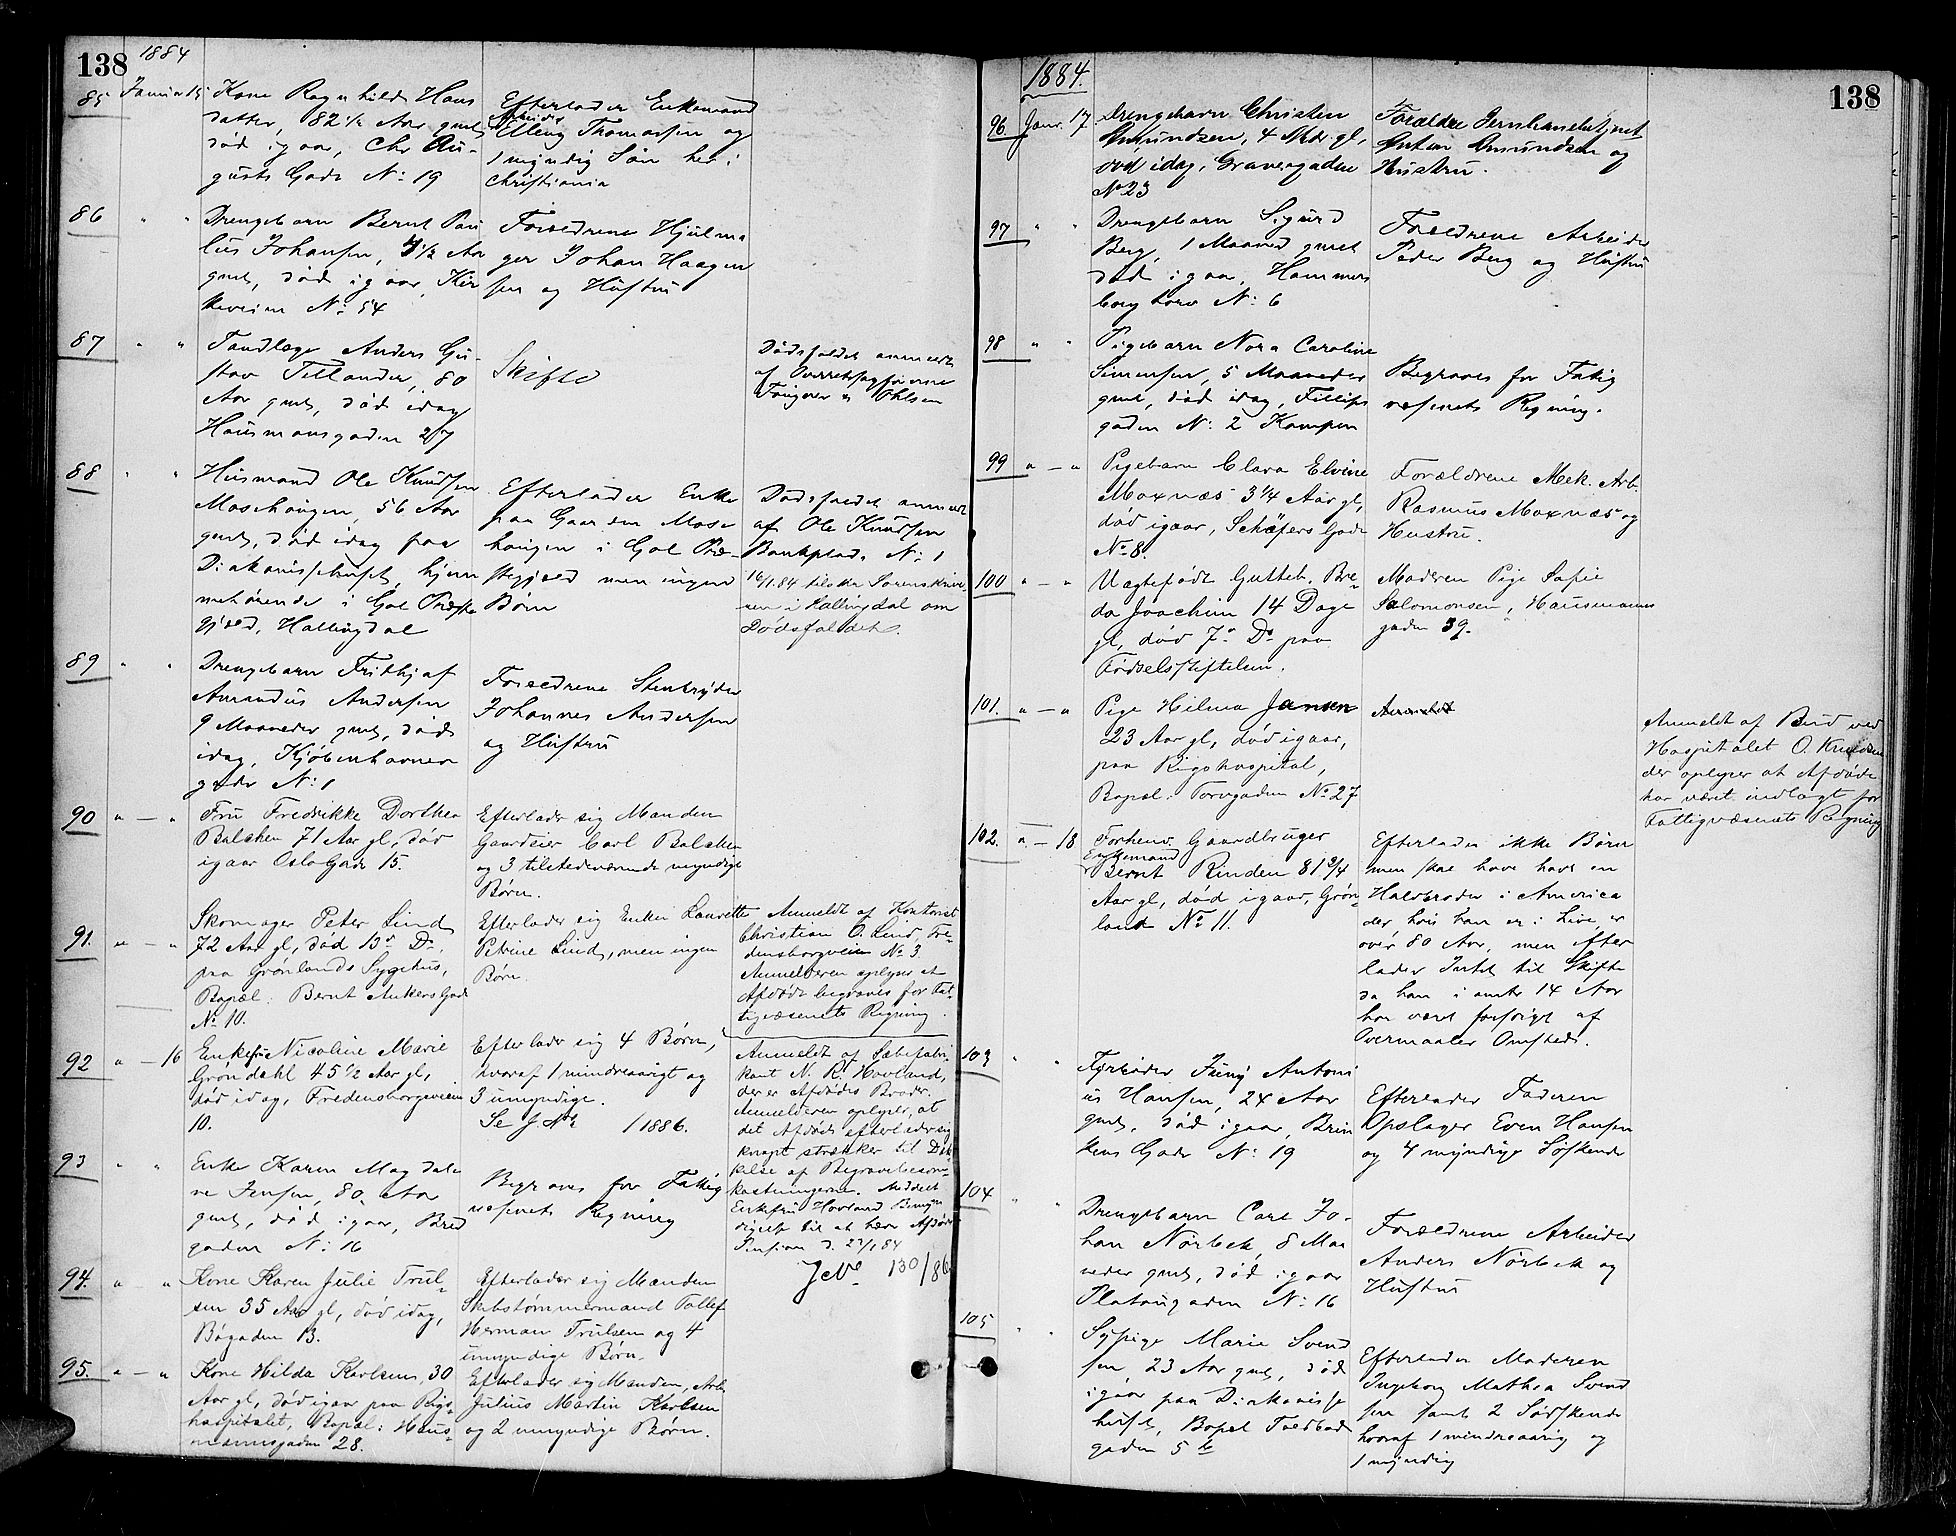 138
1884
85 Januar 15
Kone Ragnhild Hans
datter, 82 1/2 Aar gmel
død igaar, Chr Au-
gusts Gade No: 19
Efterlader Enkemand
Arbeider
Elling Thomassen og
1 myndig Søn her i
Christiania
86 " "
Drengebarn Bernt Pau
lus Johansen, 4 1/2 Aar
gmel, død igaar, Kir
keveien No: 54
Forældrene Hjulma
ger Johan Haagen
sen og Hustru
87 " "
Tandlæge Anders Gu-
stav Tellander, 80
Aar gmel, død idag
Hausmansgaden 27
Skifte
Dødsfaldet anmeldt
af Overretssagførerne
Faugner & Ohlsen
88 " "
Husmand Ole Knudsen
Mosehaugen, 56 Aar
gmel, død idag paa
Diakonissehuset, hjem
mehørende i Gol Præste
gjæld, Hallingdal
Efterlader Enke
paa Gaarden Mose
haugen i Gol Præ-
stegjæld men ingen
Børn
Dødsfaldet anmeldt
af Ole Knudsen
Bankplads No: 1
16/1.84 tilskr Sorenskrive
ren i Hallingdal om
Dødsfaldet.
89 " "
Drengebarn Frithjof
Amandus Andersen
9 Maaneder gmel, død
idag, Kjøbenhavner
gade No: 1
Forældrene Stenbryder
Johannes Andersen
og Hustru
90 " — "
Fru Fredrikke Dorthea
Balchen 71 Aar gl, død
igaar Oslo Gade 15.
Efterlader sig Manden
Gaardeier Carl Balchen
og 3 tilstedeværende myndige
Børn.
91. " — "
Skomager Peter Lund
72 Aar gl, død 13de Ds.
paa Grønlands Sygehus,
Bopæl: Bernt Ankers Gade
No 10.
Efterlader sig Enken Laurette
Petrine Lund, men ingen
Børn.
Anmeldt af Kontorist
Christian O. Lund Fre-
densborgveien No 3.
Anmelderen oplyser at
Afdøde begraves for Fat-
tigvæsenets Regning.
92 " — 16
Enkefru Nicoline Marie
Grøndahl 45 1/2 Aar gl,
død idag, Fredensborgveien
10.
Efterlader sig 4 Børn,
hvoraf 1 mindreaarigt og
3 umyndige.
Se J No /1886.
Anmeldt af Sæbefabri-
kant N. R. Hovland,
der er Afdødes Broder.
Anmelderen oplyser, at
det Afdøde efterlader sig
knapt strækker til Dæk-
kelse af Begravelsesom-
kostningerne. Meddelt
Enkefru Hovland
til at hæve Afdødes
Pension d. 22/1 84
J No 130/86
93 " "
Enke Karen Magdale
ne Jensen, 80 Aar
gmel, død igaar, Bred
gaden No: 16
Begraves for Fattig
væsnets Regning
94. " — "
Kone Karen Julie Trul-
sen 35 Aar gl, død idag,
Bøgaden 13.
Efterlader sig Manden
Skibstømmermand Tollef
Herman Trulsen og 4
umyndige Børn.
95. " — "
Kone Hilda Karlsen, 30
Aar gl, død igaar paa Rigs-
hospitalet, Bopæl: Haus-
mannsgaden 28.
Efterlader sig Manden, Arb.
Julius Martin Karlsen
og 2 umyndige Børn.
1884.
138
96. Janr. 17.
Drengebarn Christen
Amundsen, 4 Mdr gl,
død idag, Gravergaden
No 23
Forældre Jernhandelbetjent
Anton Amundsen og
Hustru.
97 " "
Drengebarn Sigurd
Berg, 1 Maaned gmel
død igaar, Hammers
borg torv No: 6
Forældrene Arbeider
Peder Berg og Hustru
98 " "
Pigebarn Nora Caroline
Simensen, 5 Maaneder
gmel, død idag, Fillips
gaden No: 2 Kampen
Begraves for Fattig
væsnets Regning.
99 " — "
Pigebarn Clara Elvine
Moxnæs 3 1/4 Aar gl,
død igaar, Schäfers Gade
No 8.
Forældrene Mek. Arb.
Rasmus Moxnæs og
Hustru.
100 " — "
Uægtefødt Gutteb. Bre-
do Joachim 14 Dage
gl, død 7de Ds paa
Fødselsstiftelsen.
Moderen Pige Sofie
Salomonsen, Hausmanns
gaden 39.
101. " — "
Pige Hilma Jansen
23 Aar gl, død igaar,
paa Rigshospital,
Bopæl: Torvgaden No 27
Anmeldt
Anmeldt af Bud ved
Hospitalet O. Knudsen
der oplyser at Afdøde
har været indlagt for
Fattigvæsenets Regning
102. " — 18
Forhenv. Gaardbruger
Enkemand
Bernt Rinden 81 3/4
Aar gl, død igaar, Grøn-
land No 11.
Efterlader ikke Børn
men skal have havt en
Halvbroder i America
der, hvis han er i Live, er
over 80 Aar, men efter
lader Intet til Skifte
da han i omtr 14 Aar
har været forsørget af
Overmaaler Omsted.
103 " "
Fyrbøder Juny Antoni
us Hansen, 24 Aar
gmel, død igaar, Brin
kens Gade No: 19
Efterlader Faderen
Opslager Even Hansen
og 4 myndige Søskende
104 "
Drengebarn Carl Jo-
han Nørbek, 8 Maa
neder gmel, død igaar
Platougaden No: 16
Forældrene Arbeider
Anders Nørbek og
Hustru
105 " "
Sypige Marie Svend
sen, 23 Aar gmel, død
igaar paa Diakonisse
huset, Bopæl Toldbod
gaden 5 b
Efterlader Moderen
Ingeborg Mathea Svend
sen samt 2 Sødskende
hvoraf 1 mindreaarig og
1 myndig